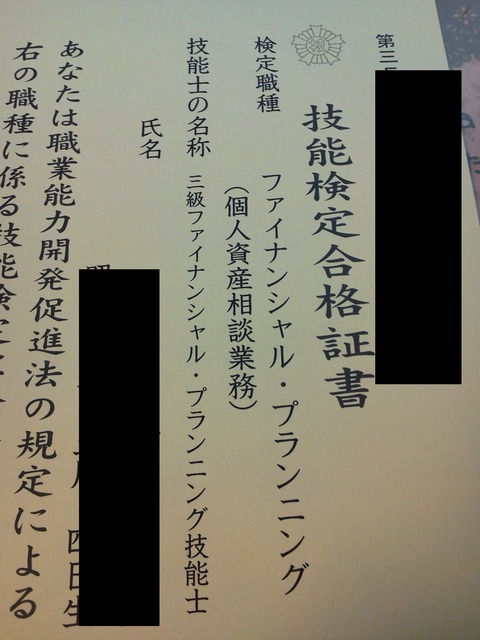 第三
技能検定合格証書
検定職種 ファイナンシャル・プランニング
(個人資産相談業務)
技能士の名称 三級ファイナンシャル・プランニング技能士
氏名
四日生
あなたは職業能力開発促進法の規定による
右の職種に係る技能検定